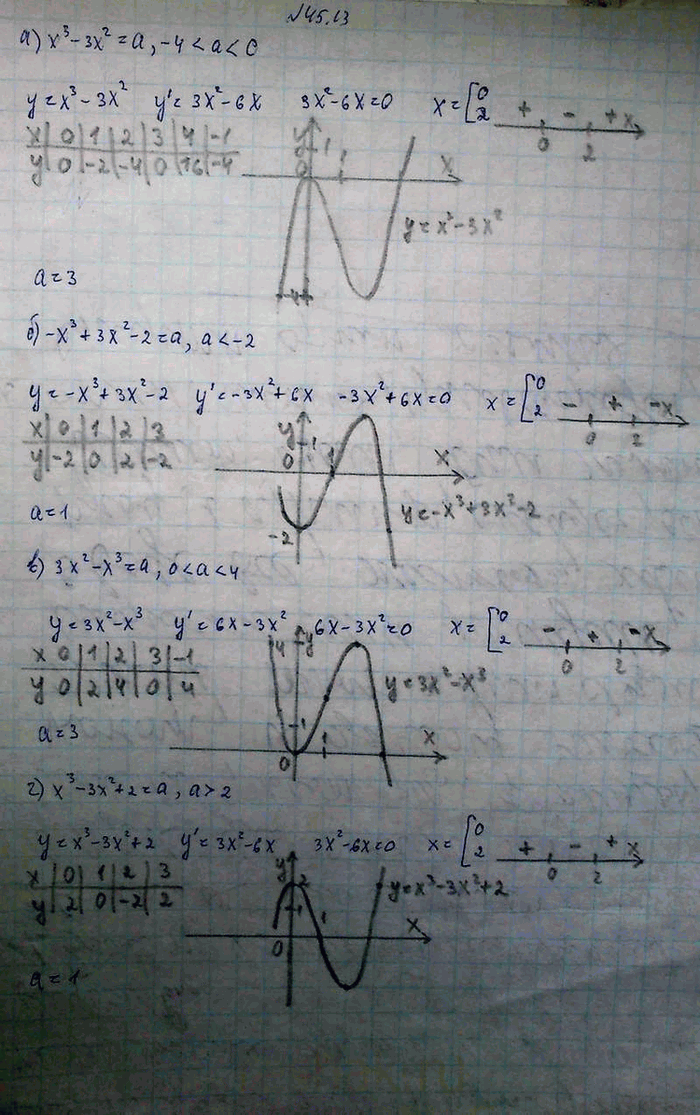 №45.13
а) x³-3x²=a, -4<a<0
y=x³-3x² y'=3x²-6x 3x²-6x=0 x=[0 2 + - + x 0 2
x 0 1 2 3 4 -1
y 0 -2 -4 0 16 -4
y 1 0 1 x
y=x³-3x²
-4
a=3
б) -x³+3x²-2=a, a<-2
y=-x³+3x²-2 y'=-3x²+6x -3x²+6x=0 x=[0 2 - + - x 0 2
x 0 1 2 3
y -2 0 2 -2
y 1 0 1 x
y=-x³+3x²-2
-2
a=1
в) 3x²-x³=a, 0<a<4
y=3x²-x³ y'=6x-3x² 6x-3x²=0 x=[0 2 - + - x 0 2
x 0 1 2 3 -1
y 0 2 4 0 4
4 y
y=3x²-x³
1 0 1 x
a=3
г) x³-3x²+2=a, a>2
y=x³-3x²+2 y'=3x²-6x 3x²-6x=0 x=[0 2 + - + x 0 2
x 0 1 2 3
y 2 0 -2 2
y 2 1 0 1 x
y=x³-3x²+2
a=1